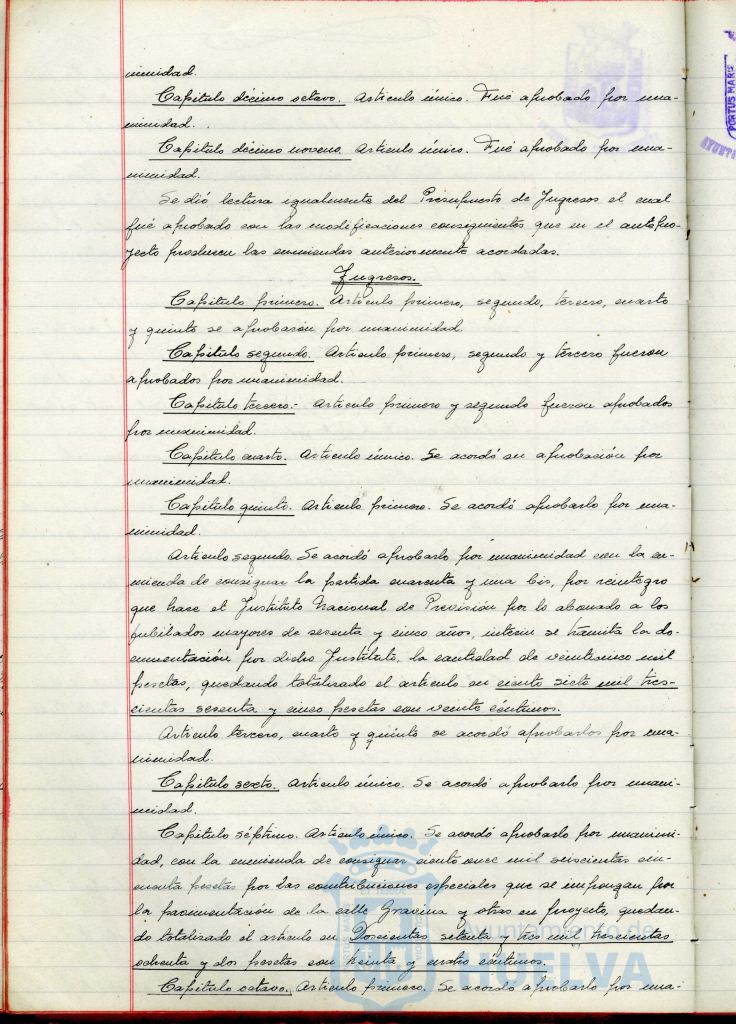 nimidad.
Capítulo décimo octavo. Artículo único. Fué aprobado por una-
nimidad.
Capítulo décimo noveno. Artículo único. Fué aprobado por una-
nimidad.
Se dió lectura igualmente del Presupuesto de Ingresos el cual
fué aprobado con las modificaciones consiguientes que en el antepro-
yecto producen las enmiendas anteriormente acordadas.
Ingresos.
Capítulo primero. Artículo primero, segundo, tercero, cuarto
y quinto se aprobaron por unanimidad.
Capítulo segundo. Artículo primero, segundo y tercero fueron
aprobados por unanimidad.
Capítulo tercero.- Artículo primero y segundo fueron aprobados
por unanimidad.
Capítulo cuarto. Artículo único. Se acordó su aprobación por
unanimidad.
Capítulo quinto. Artículo primero. Se acordó aprobarlo por una-
nimidad.
Artículo segundo. Se acordó aprobarlo por unanimidad con la en-
mienda de consignar la partida cuarenta y una bis, por reintegro
que hace el Instituto Nacional de Previsión por lo abonado a los
jubilados mayores de sesenta y cinco años, interin se tramita la do-
cumentación por dicho Instituto, la cantidad de veinticinco mil
pesetas, quedando totalizado el artículo en ciento siete mil tres-
cientas sesenta y cinco pesetas con veinte céntimos.
Artículo tercero, cuarto y quinto se acordó aprobarlos por una-
nimidad.
Capítulo sexto. Artículo único. Se acordó aprobarlo por unani-
midad.
Capítulo séptimo. Artículo único. Se acordó aprobarlo por unanimi-
dad, con la enmienda de consignar ciento once mil seiscientas cin-
cuenta pesetas por las contribuciones especiales que se impongan por
la pavimentación de la calle Gravina y otras en proyecto, quedan-
do totalizado el artículo en Doscientas setenta y tres mil trescientas
ochenta y dos pesetas con treinta y cuatro céntimos.
Capítulo octavo. Artículo primero. Se acordó aprobarlo por una-
PORTUS MARIS
AYUNTA
Ayuntamiento de
HUELVA